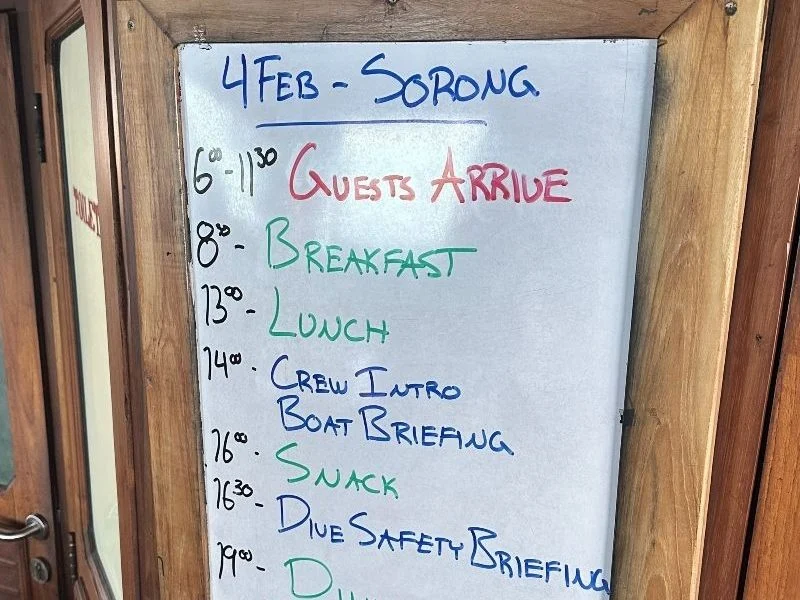 4 FEB - SORONG
6⁰⁰-11³⁰ GUESTS ARRIVE
8³⁰- BREAKFAST
13⁰⁰- LUNCH
14⁰⁰- CREW INTRO
BOAT BRIEFING
16⁰⁰- SNACK
16³⁰- DIVE SAFETY BRIEFING
19⁰⁰-
TOILET